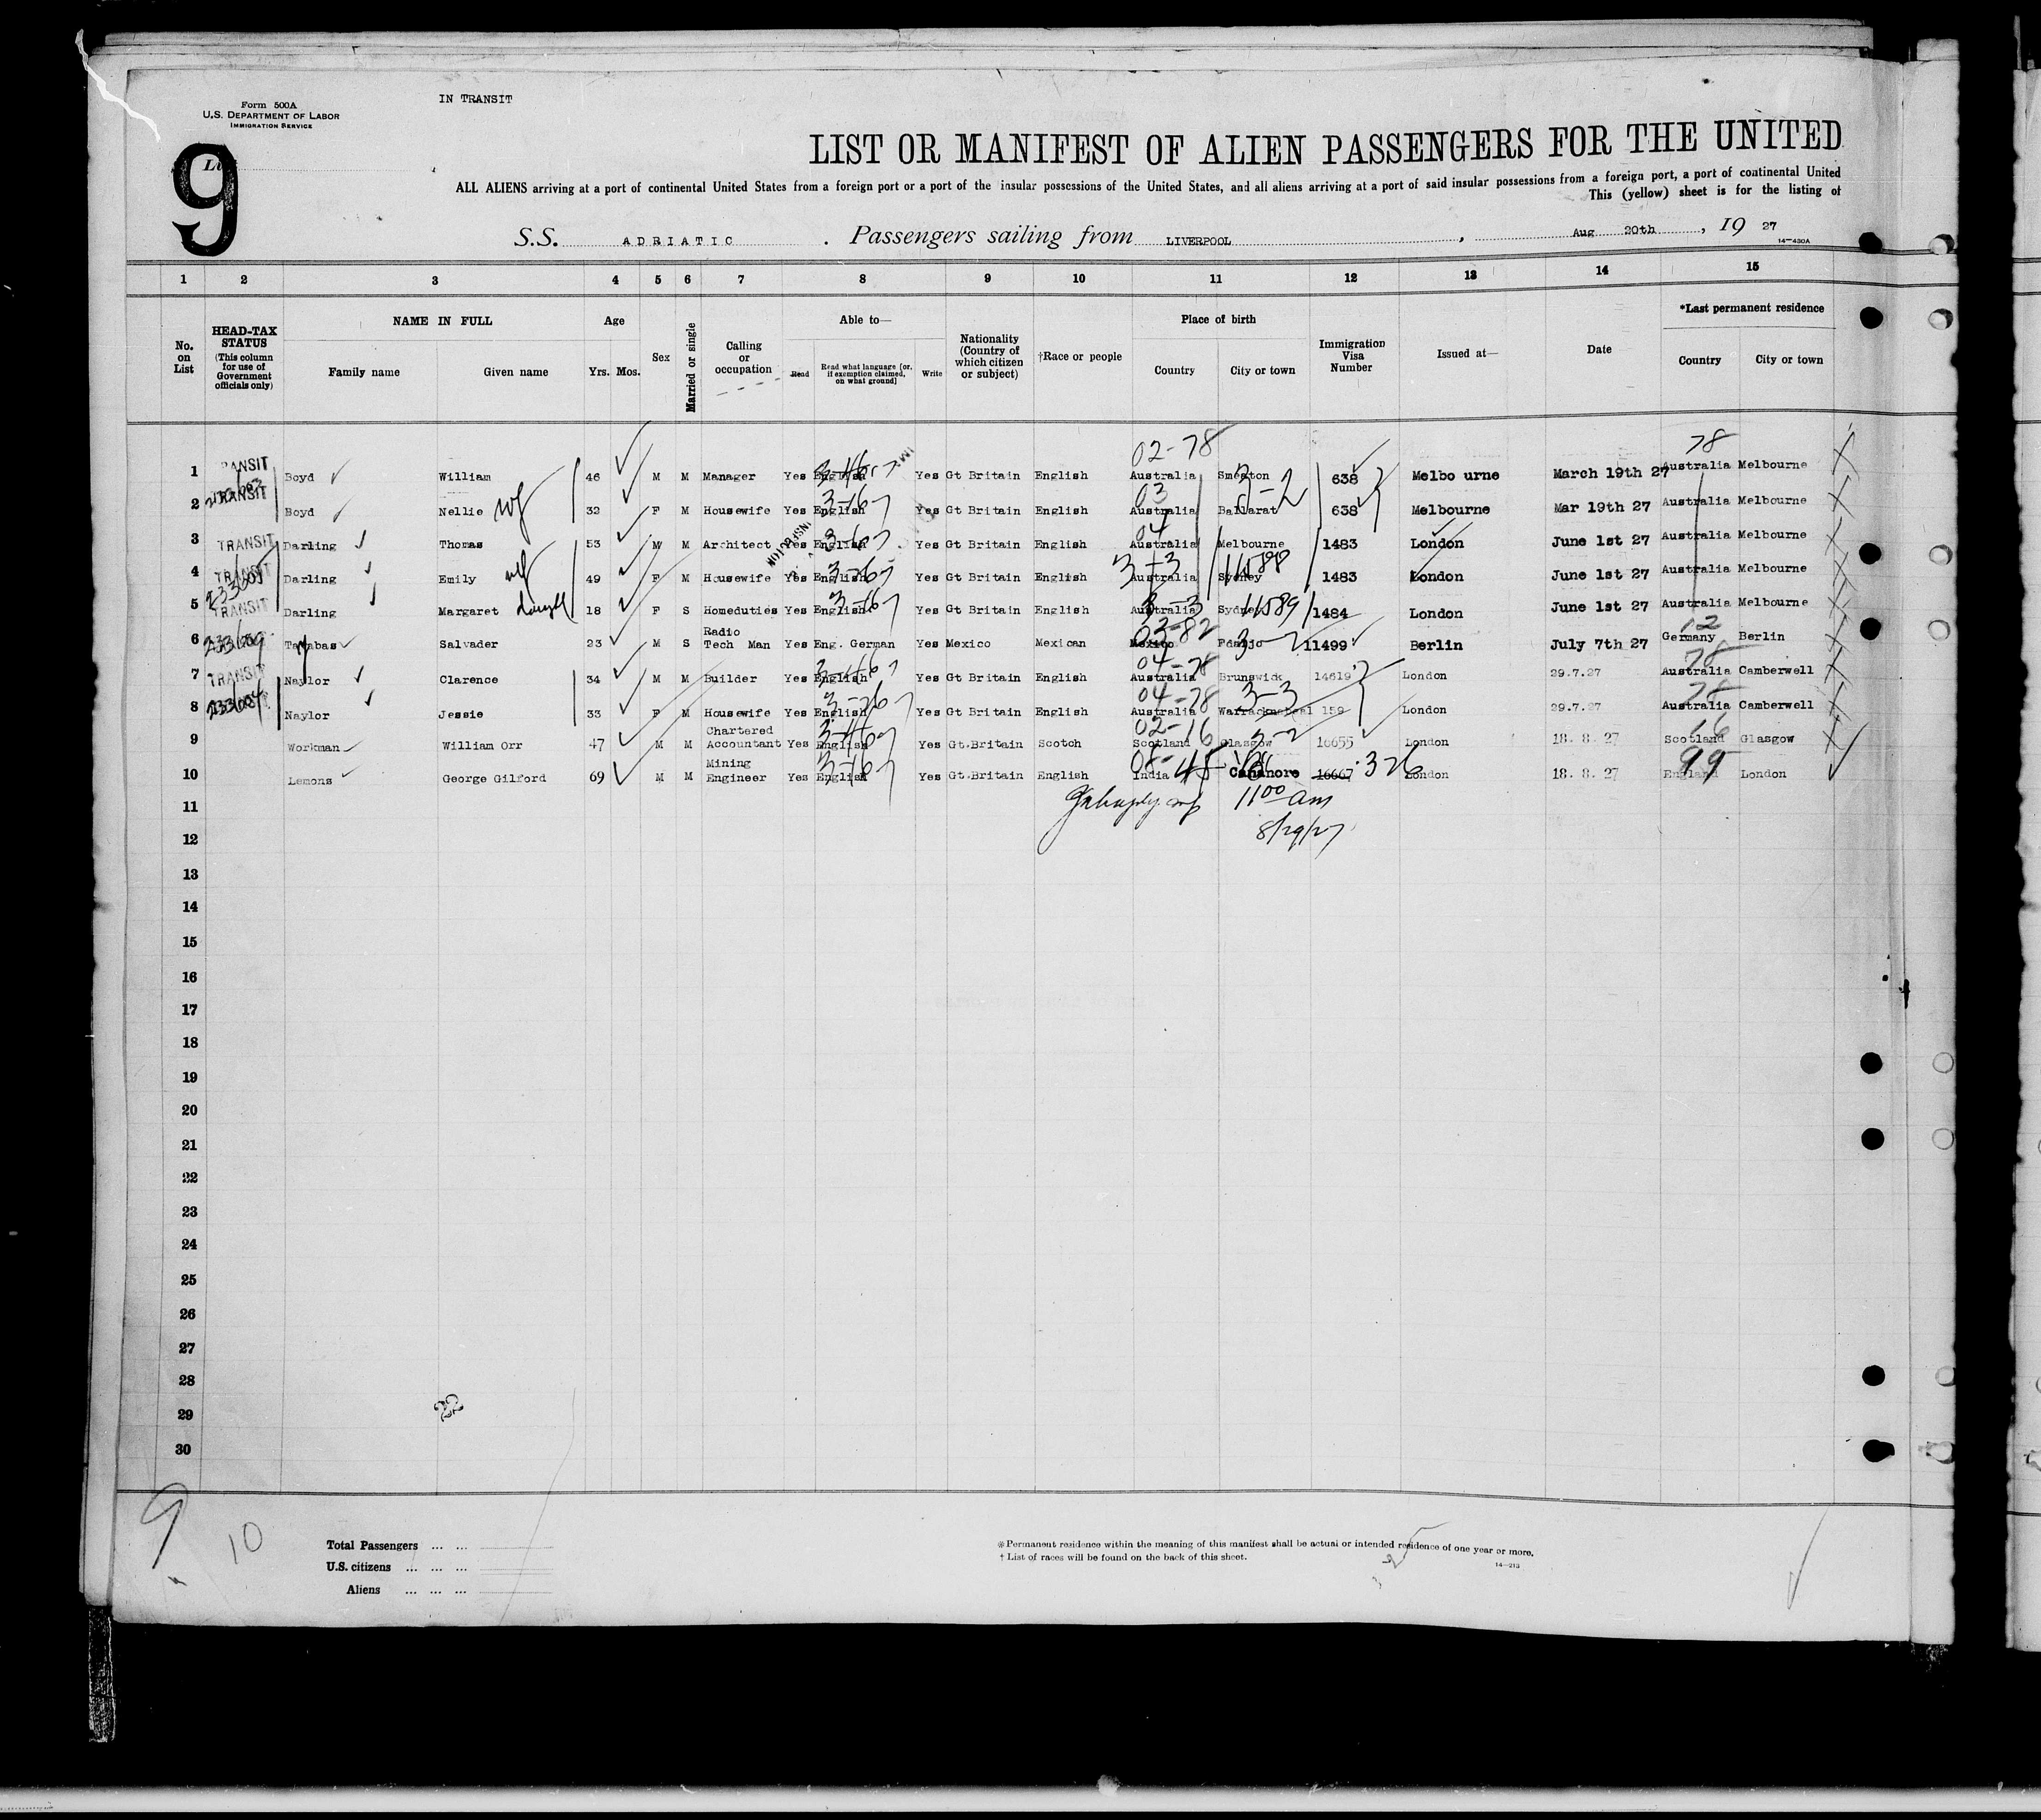 Form 500A
U.S. DEPARTMENT OF LABOR
IMMIGRATION SERVICE
IN TRANSIT
9
LIST OR MANIFEST OF ALIEN PASSENGERS FOR THE UNITED
ALL ALIENS arriving at a port of continental United States from a foreign port or a port of the insular possessions of the United States, and all aliens arriving at a port of said insular possessions from a foreign port, a port of continental United
This (yellow) sheet is for the listing of
S.S. ADRIATIC . Passengers sailing from LIVERPOOL , Aug 20th , 19 27
14—430A
1 2 3 4 5 6 7 8 9 10 11 12 13 14 15
No. on List
HEAD-TAX STATUS (This column for use of Government officials only)
NAME IN FULL
Family name Given name
Age
Yrs. Mos.
Sex
Married or single
Calling or occupation
Able to—
Read
Read what language [or, if exemption claimed, on what ground]
Write
Nationality (Country of which citizen or subject)
†Race or people
Place of birth
Country City or town
Immigration Visa Number
Issued at—
Date
*Last permanent residence
Country City or town
02-78 78
1 TRANSIT Boyd William 46 M M Manager Yes English Yes Gt Britain English Australia Smeaton 638 Melbo urne March 19th 27 Australia Melbourne
2 TRANSIT Boyd Nellie wf 32 F M Housewife Yes English Yes Gt Britain English Australia Ballarat 638 Melbourne Mar 19th 27 Australia Melbourne
3 TRANSIT Darling Thomas 53 M M Architect Yes English Yes Gt Britain English Australia Melbourne 1483 London June 1st 27 Australia Melbourne
4 TRANSIT Darling Emily wf 49 F M Housewife Yes English Yes Gt Britain English Australia Sydney 1483 London June 1st 27 Australia Melbourne
5 TRANSIT Darling Margaret 18 F S Homeduties Yes English Yes Gt Britain English Australia Sydney 1484 London June 1st 27 Australia Melbourne
6 Salvader 23 M S Radio Tech Man Yes Eng. German Yes Mexico Mexican Mexico 11499 Berlin July 7th 27 Germany Berlin
7 TRANSIT Naylor Clarence 34 M M Builder Yes English Yes Gt Britain English Australia Brunswick 14619 London 29.7.27 Australia Camberwell
8 Naylor Jessie 33 F M Housewife Yes English Yes Gt Britain English Australia Warracknabeal 159 London 29.7.27 Australia Camberwell
9 Workman William Orr 47 M M Chartered Accountant Yes English Yes Gt.Britain Scotch Scotland Glasgow 16655 London 18. 8. 27 Scotland Glasgow
10 Lemons George Gilford 69 M M Mining Engineer Yes English Yes Gt.Britain English India Cananore 16667 326 London 18. 8. 27 England London
11 11 00 am
12 8/29/27
13
14
15
16
17
18
19
20
21
22
23
24
25
26
27
28
29
30
22
9
10
Total Passengers ... ...
U.S. citizens ... ... ...
Aliens ... ... ...
* Permanent residence within the meaning of this manifest shall be actual or intended residence of one year or more.
† List of races will be found on the back of this sheet.
14—213